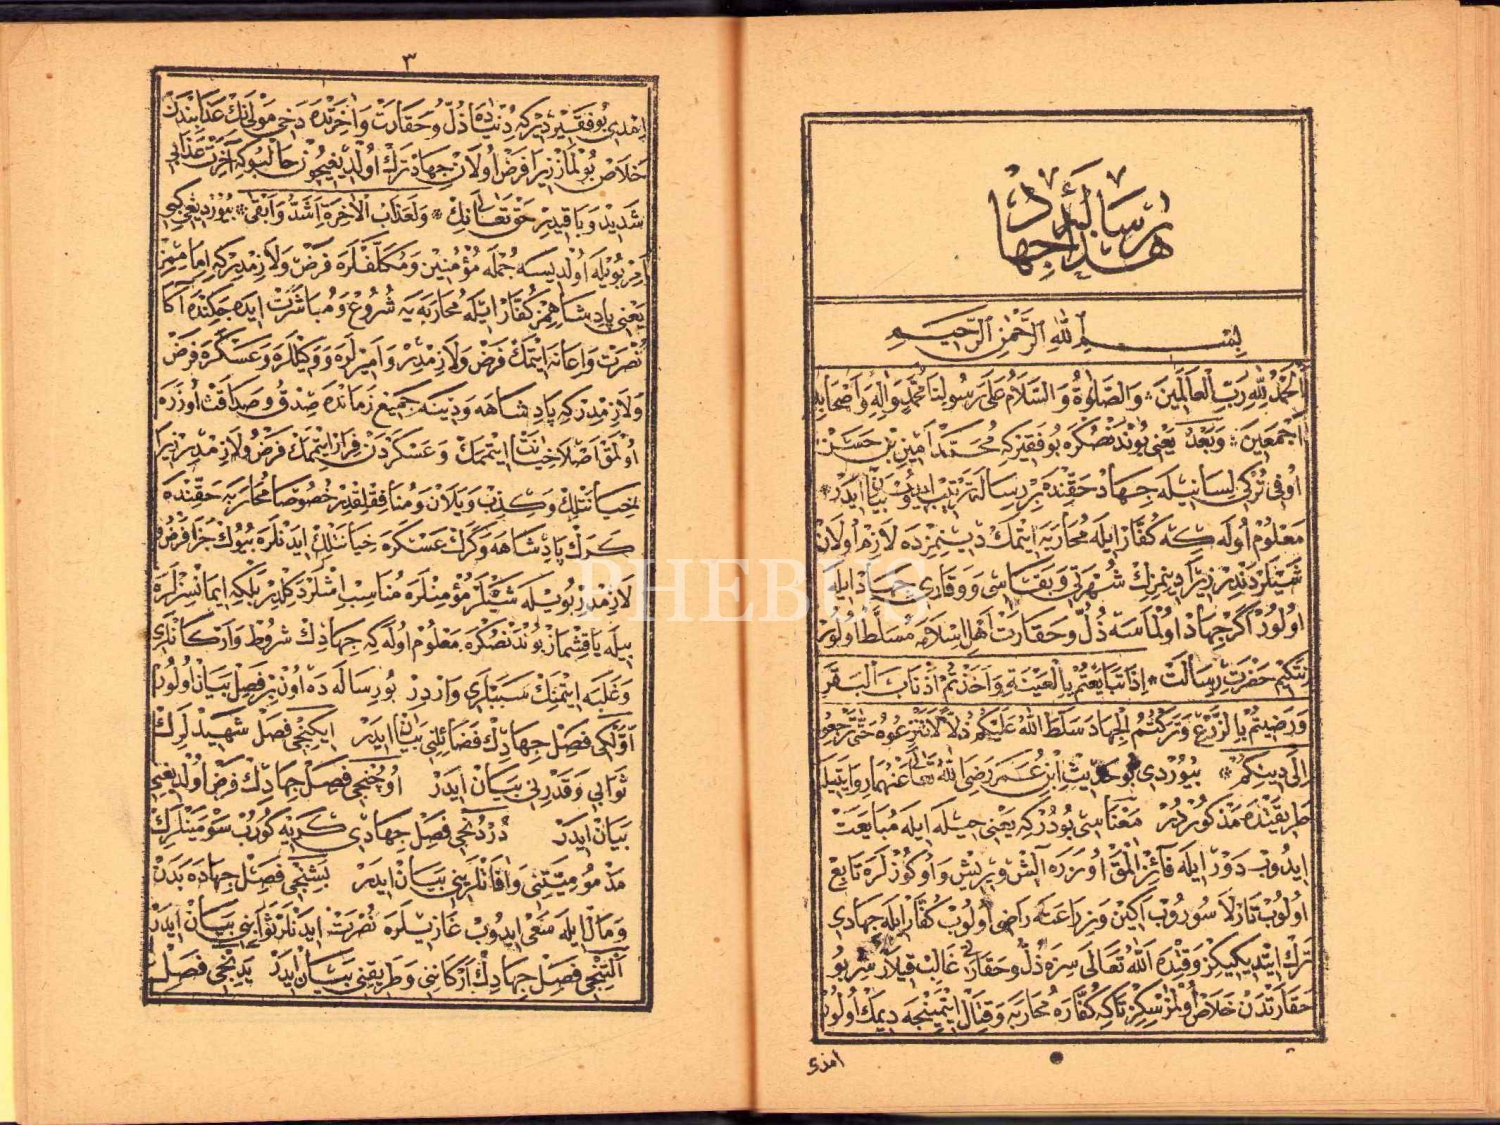 هذا رسالة جهاد
بسم الله الرحمن الرحيم
الحمد لله رب العالمين والصلوة والسلام على رسولنا محمد واله واصحابه
اجمعين وبعد يعنى بوندنصكره بو فقير كه محمد امين بن حسن
اوفى تركى لسانيله جهاد حقنده بر رساله ترتيب ايدوب بيان ايدر
معلوم اوله كه كفار ايله محاربه ايتمك دينمزده لازم اولان
شيلردندر زيرا دينمزك شهرتى وبقاسى ووقارى جهاد ايله
اولور اكر جهاد اولماسه ذل وحقارت اهل اسلامه مسلط اولور
نتكيم حضرت رسالت * اذا تبايعتم بالعينة واخذتم اذناب البقر
ورضيتم بالزرع وتركتم الجهاد سلط الله عليكم ذلا لا تنزعوه حتى ترجعوا
الى دينكم * بيوردى بو حديث ابن عمر رضى الله تعالى عنهما روايتيله
طريقنده مذكوردر معناسى بودر كه يعنى حيله ايله مبايعت
ايدوب دور ايله فائز المق اوزره آلش ويريش واوكوزلره تابع
اولوب تازلا سوروب اكين وزراعته راضى اولوب كفار ايله جهادى
ترك ايتديككز وقتده الله تعالى سزه ذل وحقارتى غالب قيلار شر بو
حقارتدن خلاص اولمزسكز تاكه كفاره محاربه وقتال ايتمينجه ديمك اولور
امدى
٣
امدى بو فقير دير كه دنياده ذل وحقارت واخرتده دخى مولانك عذابندن
خلاص بولماز زيرا فرض اولان جهاد ترك اولديغيچون حالبوكه آخرت عذابى
شديد وباقيدر حق تعالى نك * ولعذاب الاخرة اشد وابقى * بيورديغى كبى
امر بويله اولديسه جمله مؤمنين ومكلفلره فرض ولازمدر كه اماممز
يعنى پادشاهمز كفار ايله محاربه يه شروع ومباشرت ايده جكنده اكا
نصرت واعانه ايتمك فرض ولازمدر واميرلره ووكيللره وعسكره فرض
ولازمدر كه پادشاهه ودينه جميع زمانده صدق وصداقت اوزره
اولمق اصلا خيانت ايتممك وعسكردن فرار ايتممك فرض ولازمدر زيرا
خيانتلك وكذب ويلان ومنافقلقدر خصوصا محاربه حقنده
كرك پادشاهه وكرك عسكره خيانتلك ايدنلره بيوك جزا فرض و
لازمدر بويله شيلر مؤمنلره مناسب اشلر دكلدر بلكه ايمانسزلره
بيله ياقشماز بوندنصكره معلوم اوله كه جهادك شروط واركانلرى
وغلبه ايتمنك سببلرى واردر بو رساله ده اون بر فصل بيان اولور
اولكى فصل جهادك فضائلنى بيان ايدر ايكنجى فصل شهيدلرك
ثوابى وقدرنى بيان ايدر اوچنجى فصل جهادك فرض اولديغنى
بيان ايدر دردنجى فصل جهادى كريه كورب سومينلرك
مذموميتنى وافاتلرينى بيان ايدر بشنجى فصل جهاده بدن
ومال ايله سعى ايدوب غازيلره نصرت ايدنلر ثوابنى بيان ايدر
التنجى فصل جهادك اركاننى وطريقنى بيان ايدر يدنجى فصل